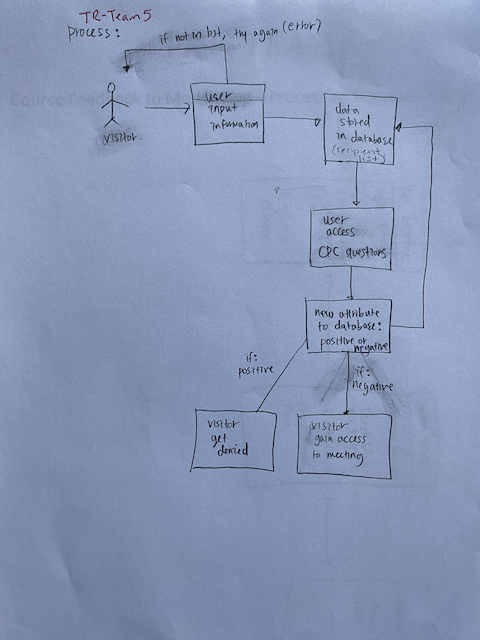 TR-Team 5
Process:
if not in list, try again (error)
visitor
user
input
information
data
stored
in database
(recipient
list)
user
access
CDC questions
new attribute
to database:
positive or
negative
if:
positive
if:
negative
visitor
get
denied
visitor
gain access
to meeting